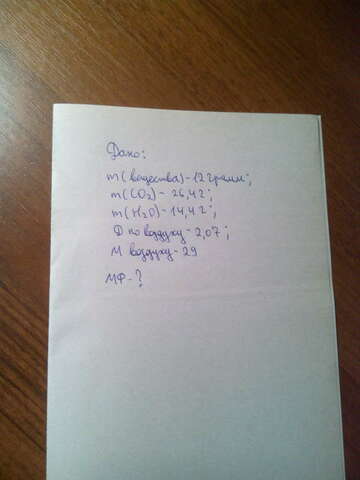 Дано:
m(вещества)-12грамм;
m(CO₂)-26,4г;
m(H₂O)-14,4г;
D по воздуху-2,07;
M воздуху-29
МФ-?